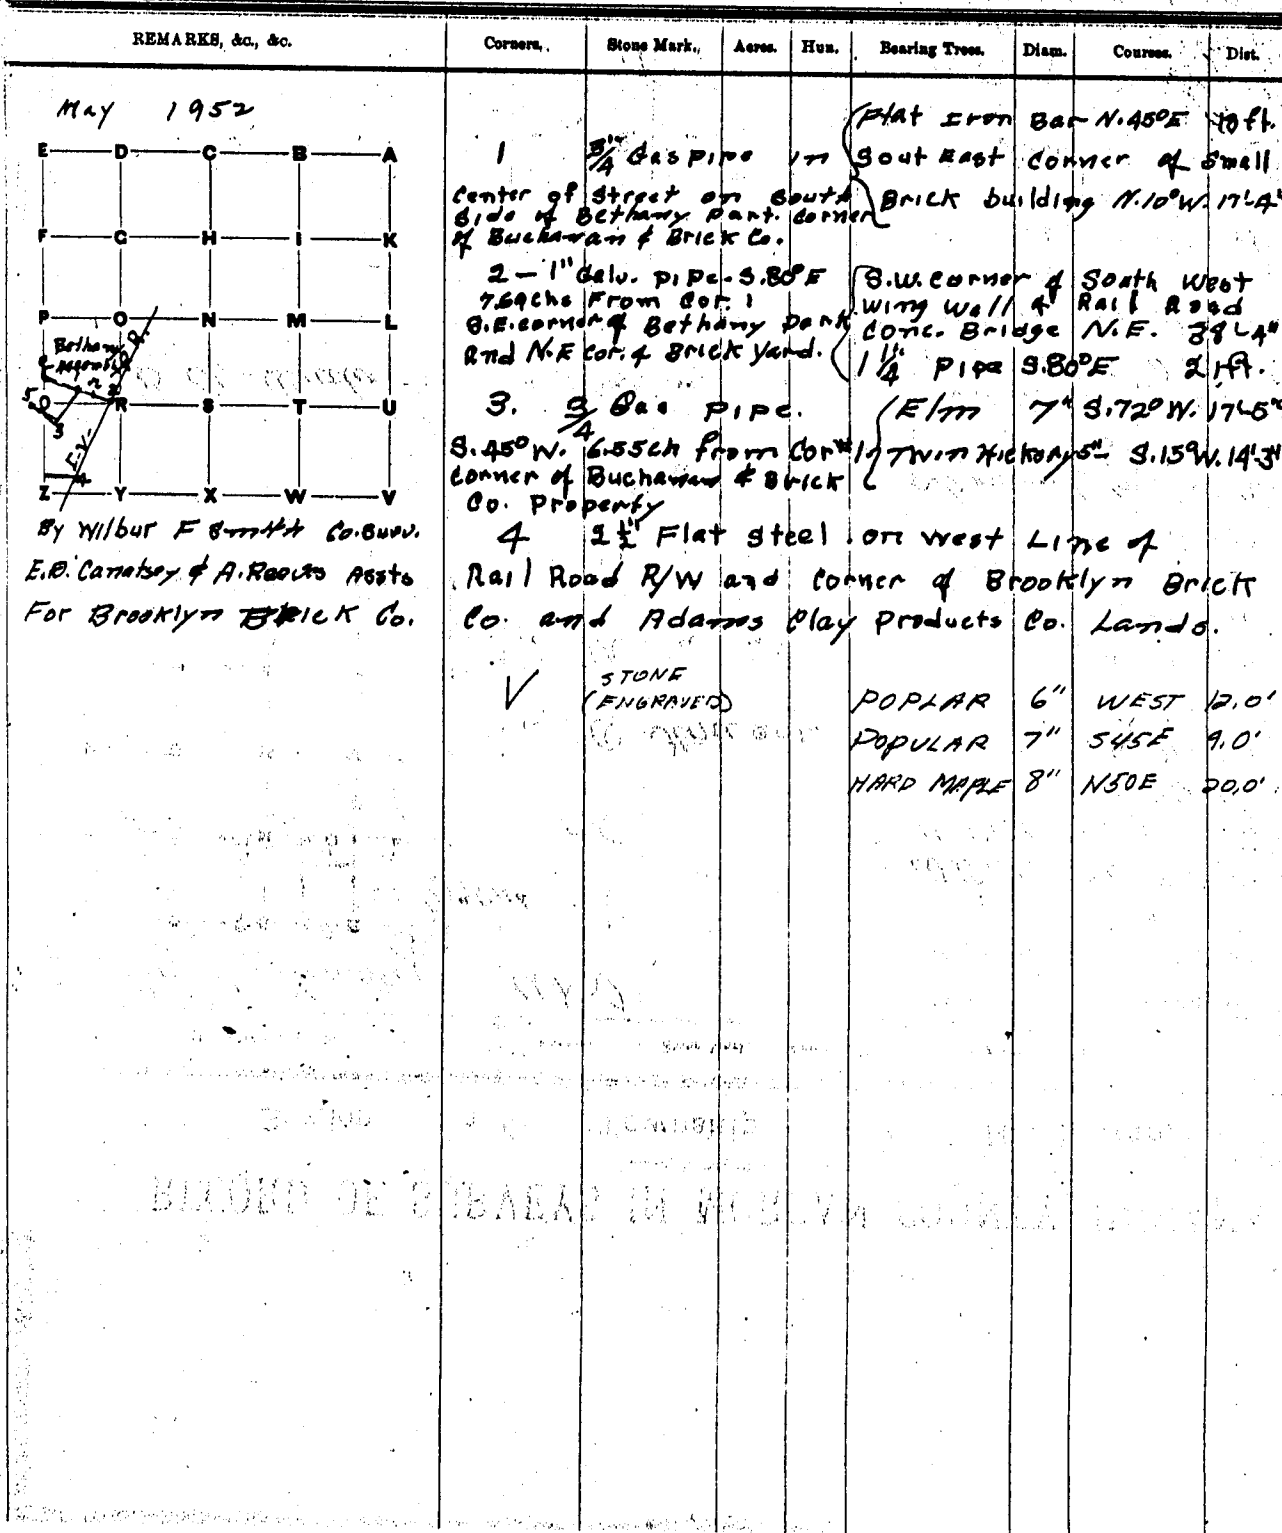 REMARKS, &c., &c. Corners, Stone Mark, Acres. Hun. Bearing Trees. Diam. Courses. Dist.
May 1952
E D C B A
F G H I K
P O N M L
Bethany
Q R S T U
Z Y X W V
By Wilbur F Smith Co. Surv.
E.B. Canatsey & A. Assts
For Brooklyn Brick Co.
1 3/4" Gas pipe in
Center of Street on South
Side of Bethany Park. Corner
of Buchanan & Brick Co.
Flat Iron Bar N.45°E ft.
Sout East Corner of Small
Brick building N.10°W. 17'-4"
2 - 1" Galv. pipe - S.80°E
7.69 Chs From Cor. 1
S.E. corner of Bethany Park
and N.E cor. of Brick yard.
S.W. Corner of South West
Wing Wall of Rail Road
Conc. Bridge N.E. 38'-4"
1 1/4" Pipe S.80°E 21 ft.
3. 3/4 Gas pipe.
S.45°W. 6.55 ch from Cor # 1
Corner of Buchanan & Brick
Co. Property
Elm 7" S.72°W. 17'-5"
Twin Hickory 5" S.15°W. 14'-3"
4 2 1/2" Flat Steel on West Line of
Rail Road R/W and Corner of Brooklyn Brick
Co. and Adams Clay Products Co. Lands.
V STONE
(ENGRAVED)
POPLAR 6" WEST 12.0'
POPULAR 7" S45E 9.0'
HARD MAPLE 8" N50E 20.0'